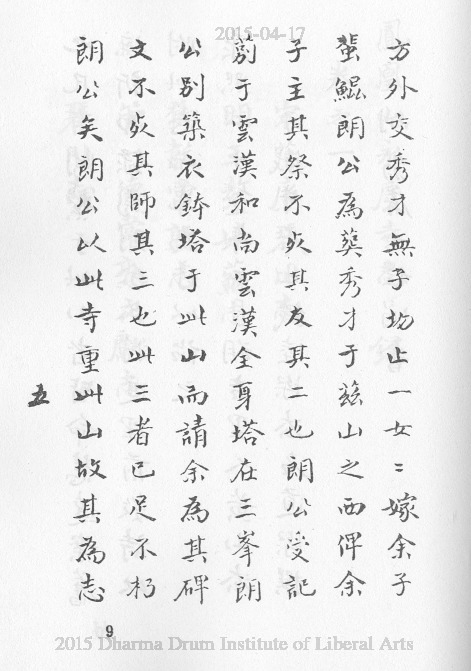 2015-04-17
方外交秀才無子止一女〻嫁余子
蜚鯤朗公為葬秀才于茲山之西俾余
子主其祭不死其友其二也朗公受記
莂于雲漢和尚雲漢全身塔在三峯朗
公別築衣鉢塔于此山而請余為其碑
文不死其師其三也此三者已足不朽
朗公矣朗公以此寺重此山故其為志
五
9
2015 Dharma Drum Institute of Liberal Arts